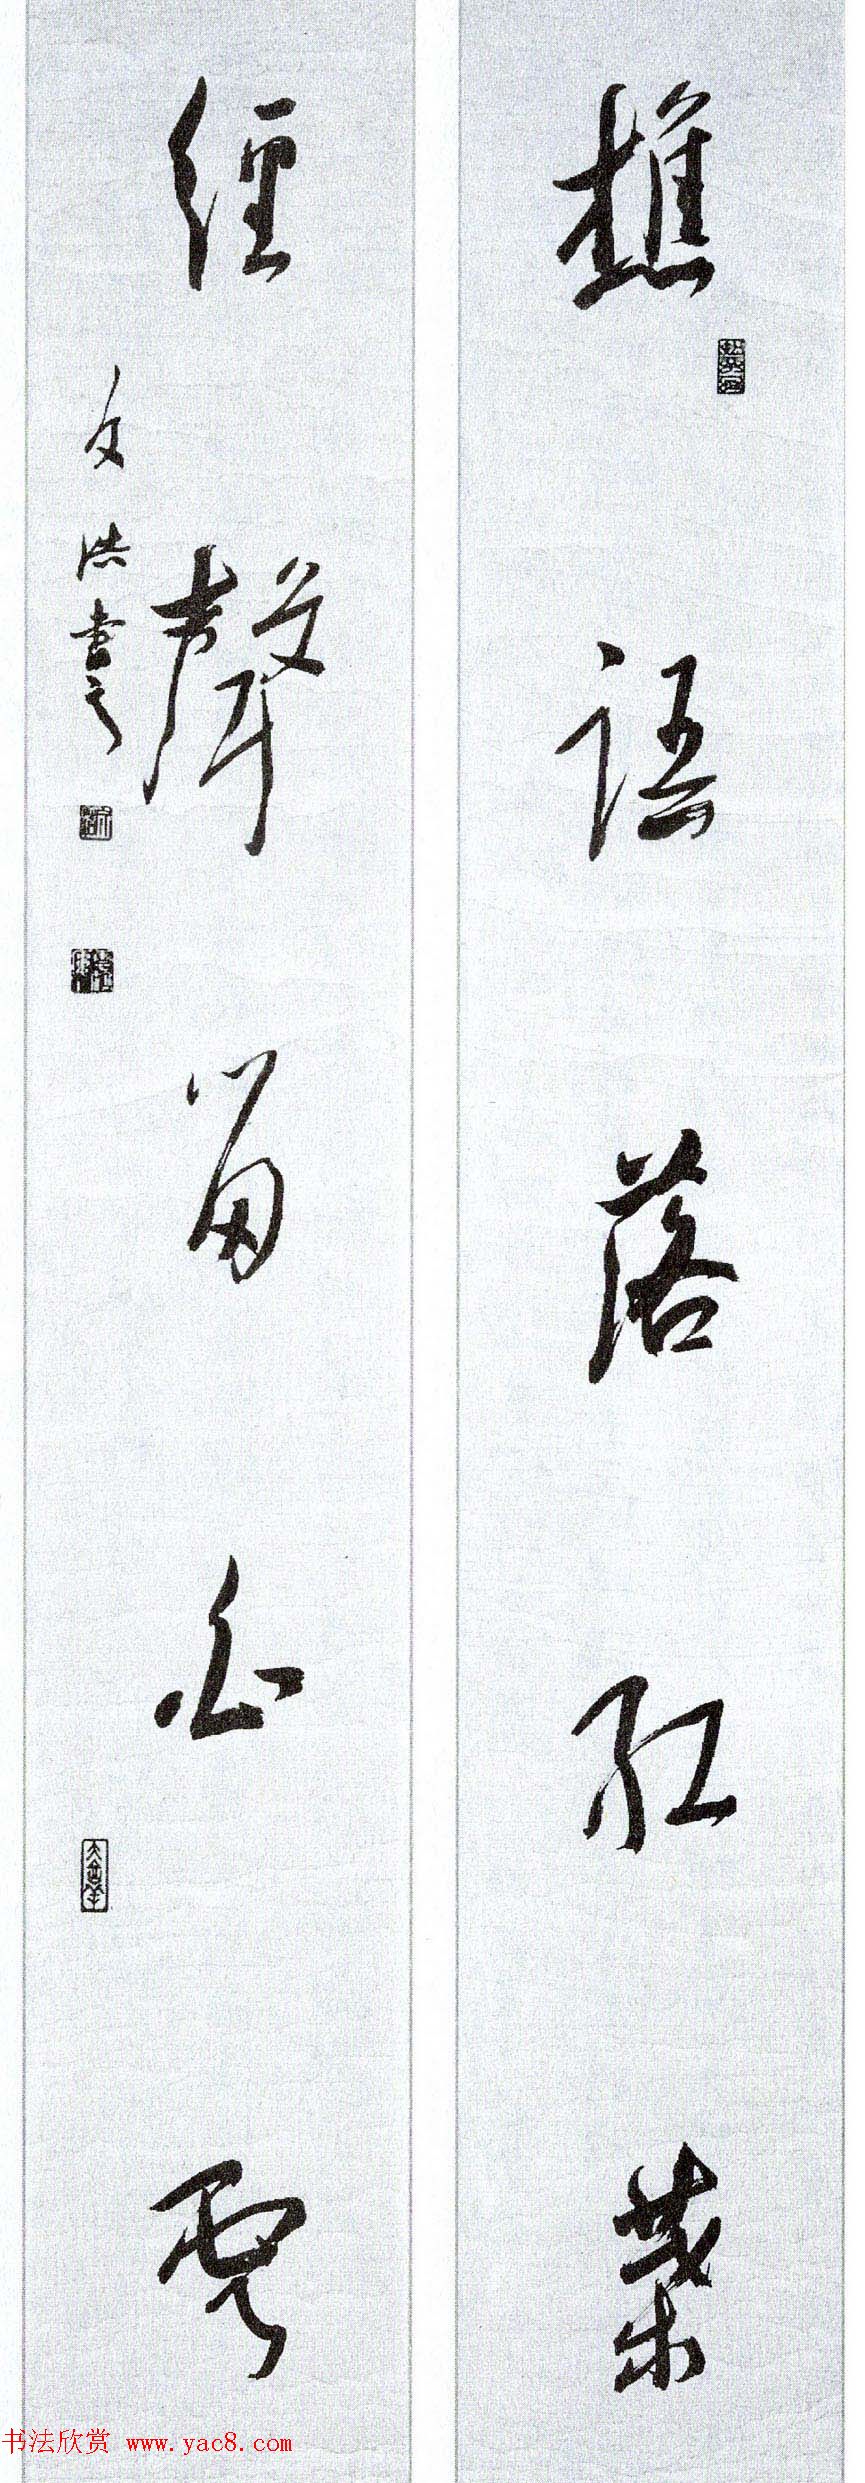 樵語落紅葉
經聲留白雲
文浩書之
书法欣赏 www.yac8.com